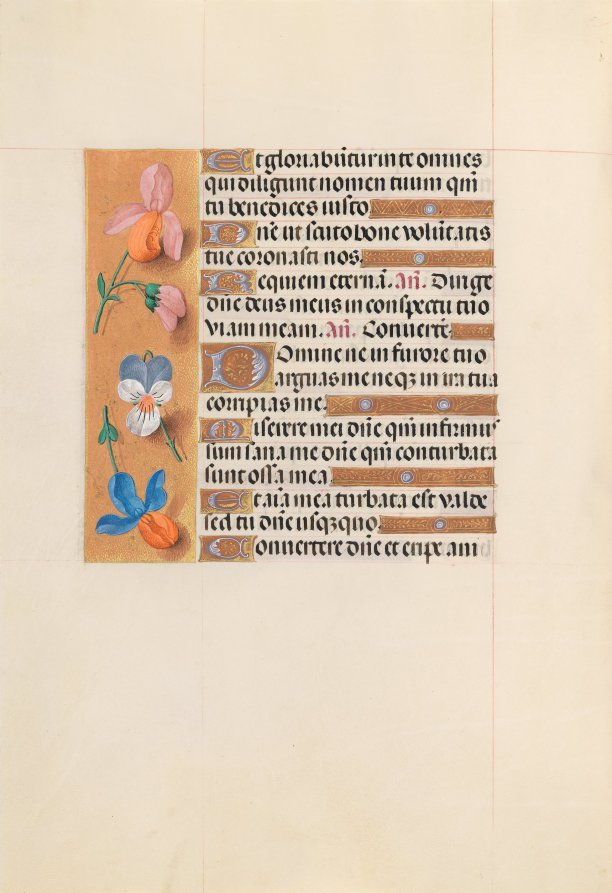 Et gloriabũtur in te omnes
qui diligunt nomen tuum qm̃
tu benedices iusto
Dñe ut scuto bone volũtatis
tue coronasti nos.
Requiem eternã. Añ. Dirige
dñe deus meus in conspectu tuo
viam meam. Añ. Conuerte.
Domine ne in furore tuo
arguas me neqꝫ in ira tua
corripias me.
Miserere mei dñe qm̃ infirmus
sum sana me dñe qm̃ conturbata
sunt ossa mea.
Et aĩa mea turbata est valde
sed tu dñe usqꝫquo.
Conuertere dñe et eripe am